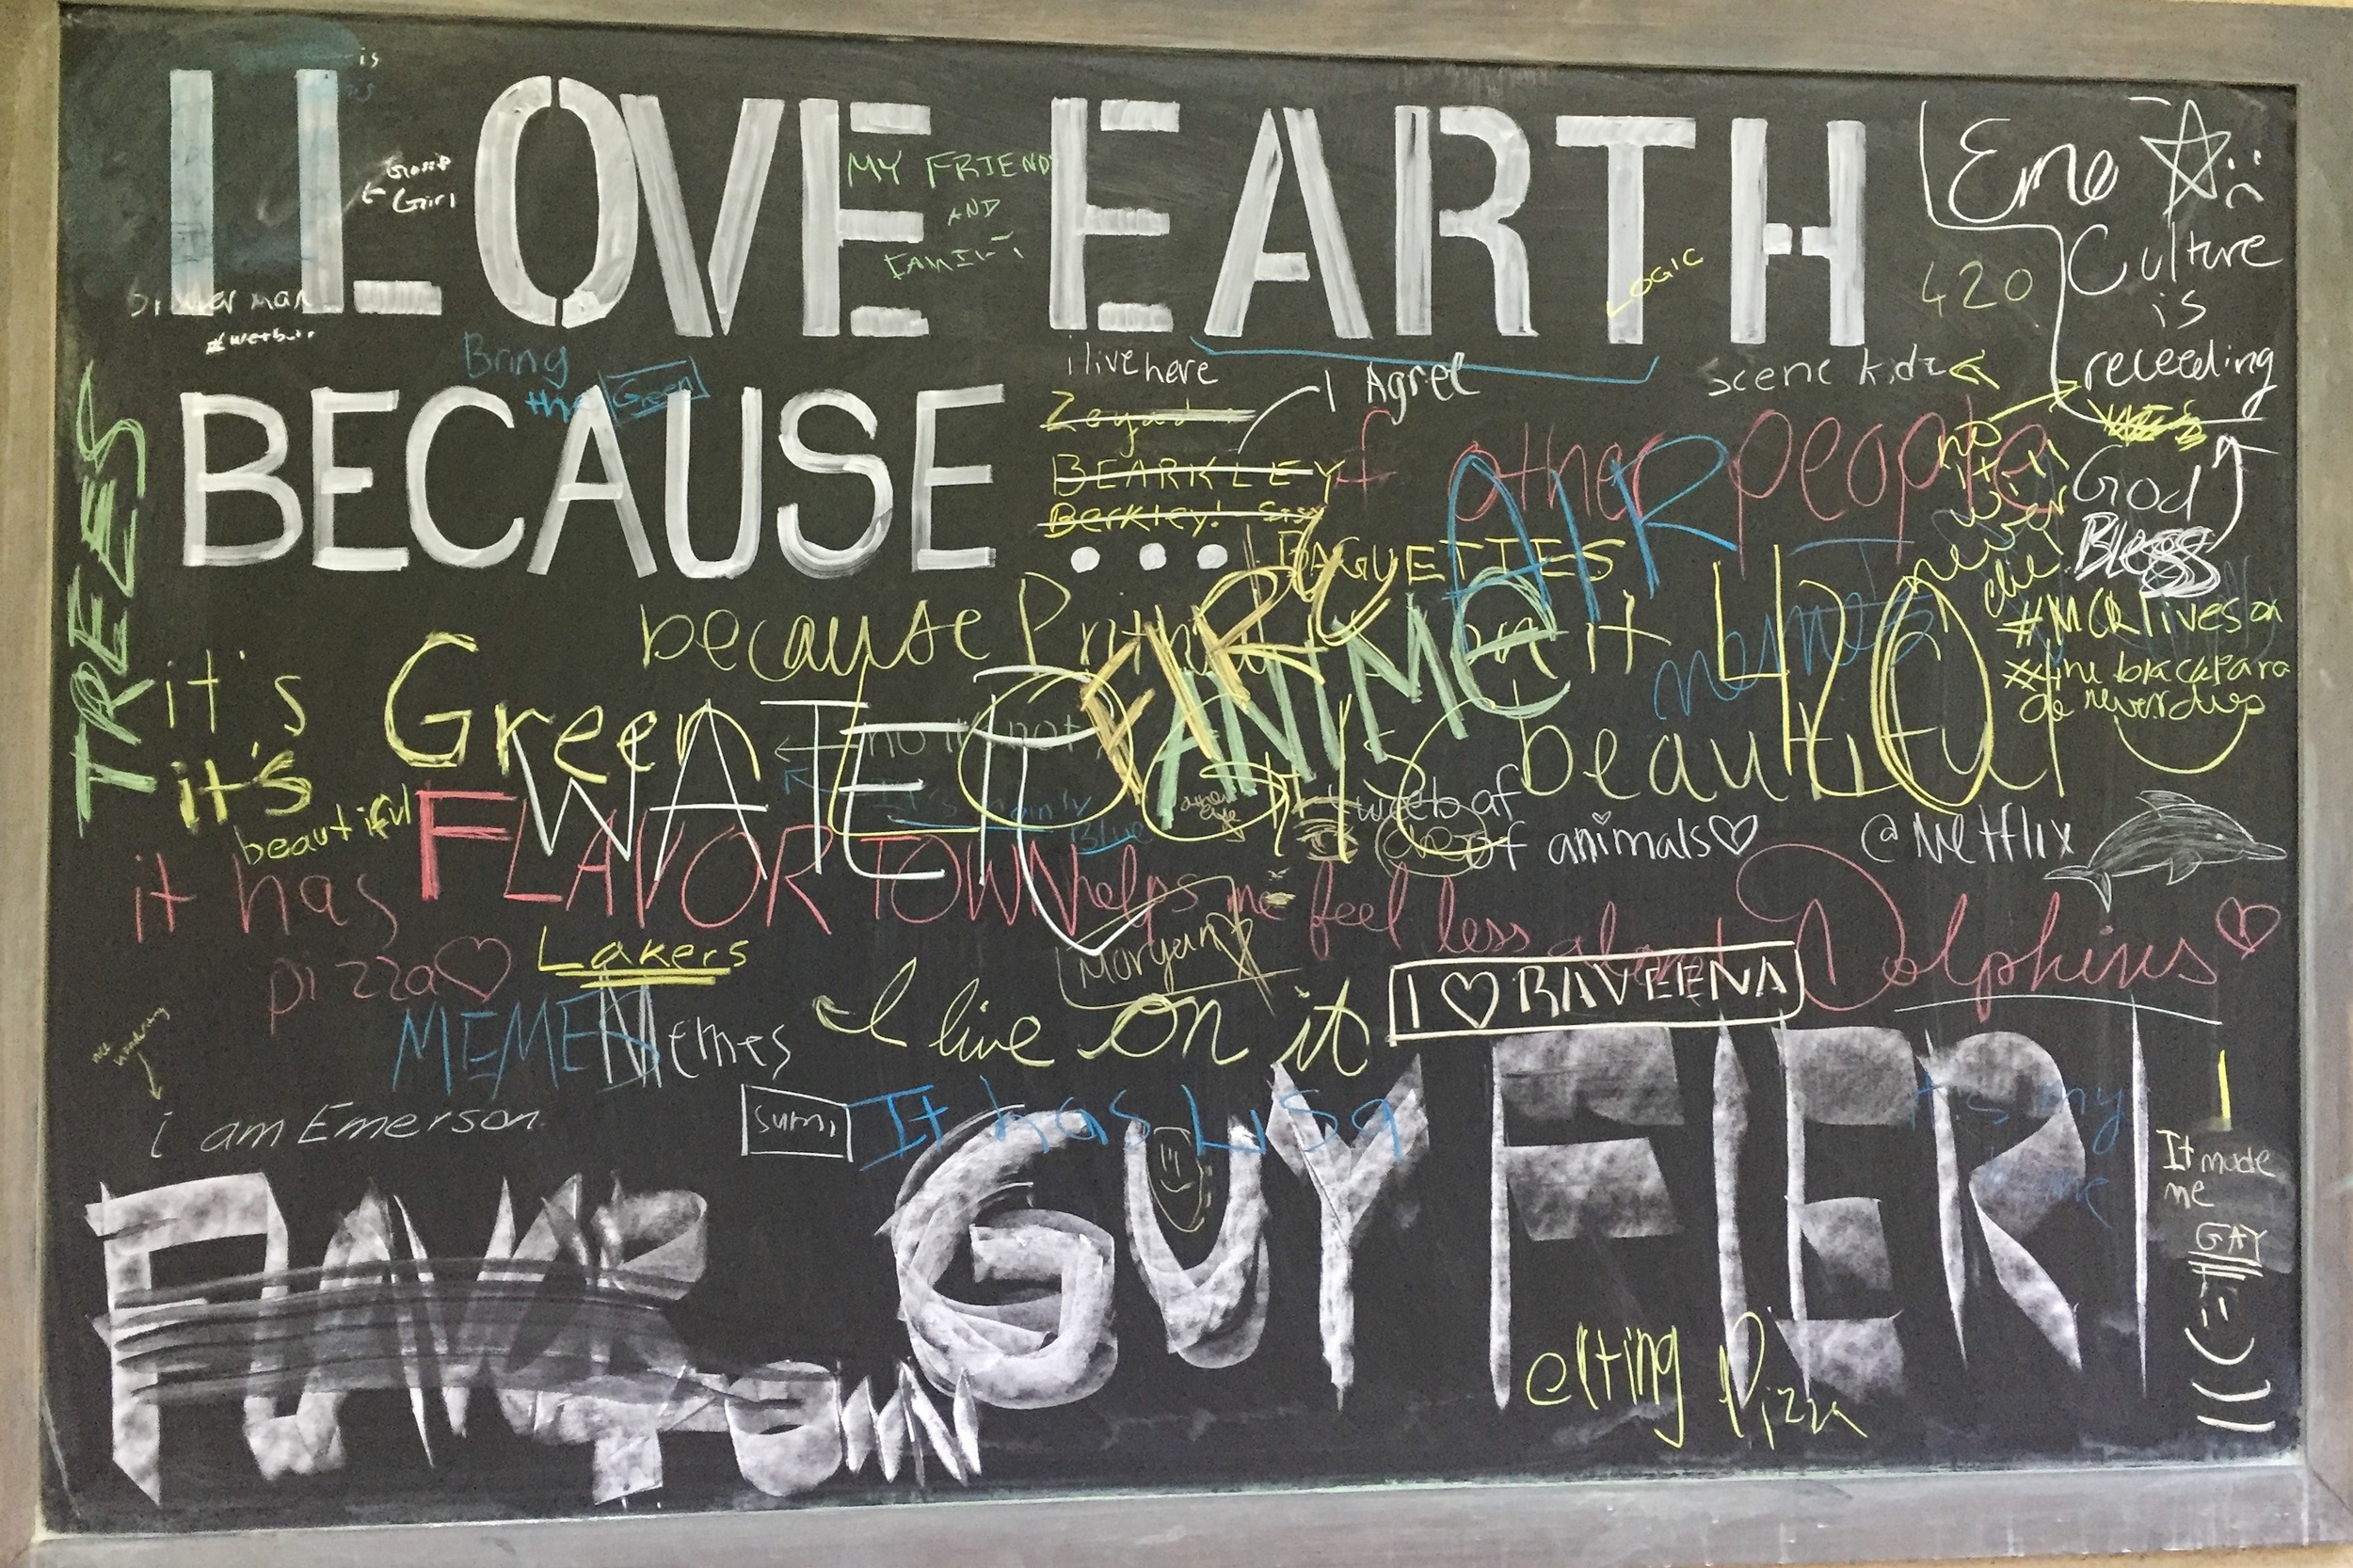 I LOVE EARTH
BECAUSE
...
is
Gossip
Girl
MY FRIEND
AND
FAMILY
LOGIC
Emo
Culture
is
receeding
420
Bring
the Green
i live here
I Agree
scene kidz
Zeyad
BEARKLEY
Berkley!
if other people
AIR
no
it will
never
die
God
Bless
TREES
BAGUETTES
because
on it
FIRE
ANIME
memes
420
#MCR lives on
it's Green
no it's not
WATER
beautiful
it's
beautiful
It's mainly
Blue
weeb af
of animals
@Netflix
it has FLAVOR TOWN
helps me feel less alone
Dolphins
pizza
Lakers
Morgan
I ♡ RAVEENA
MEMES
Memes
I live on it
i am Emerson
sumi
It has Lisa
It's my
home
It made
me
GAY
FLAVOR
TOWN
GUY FIERI
eating Pizza